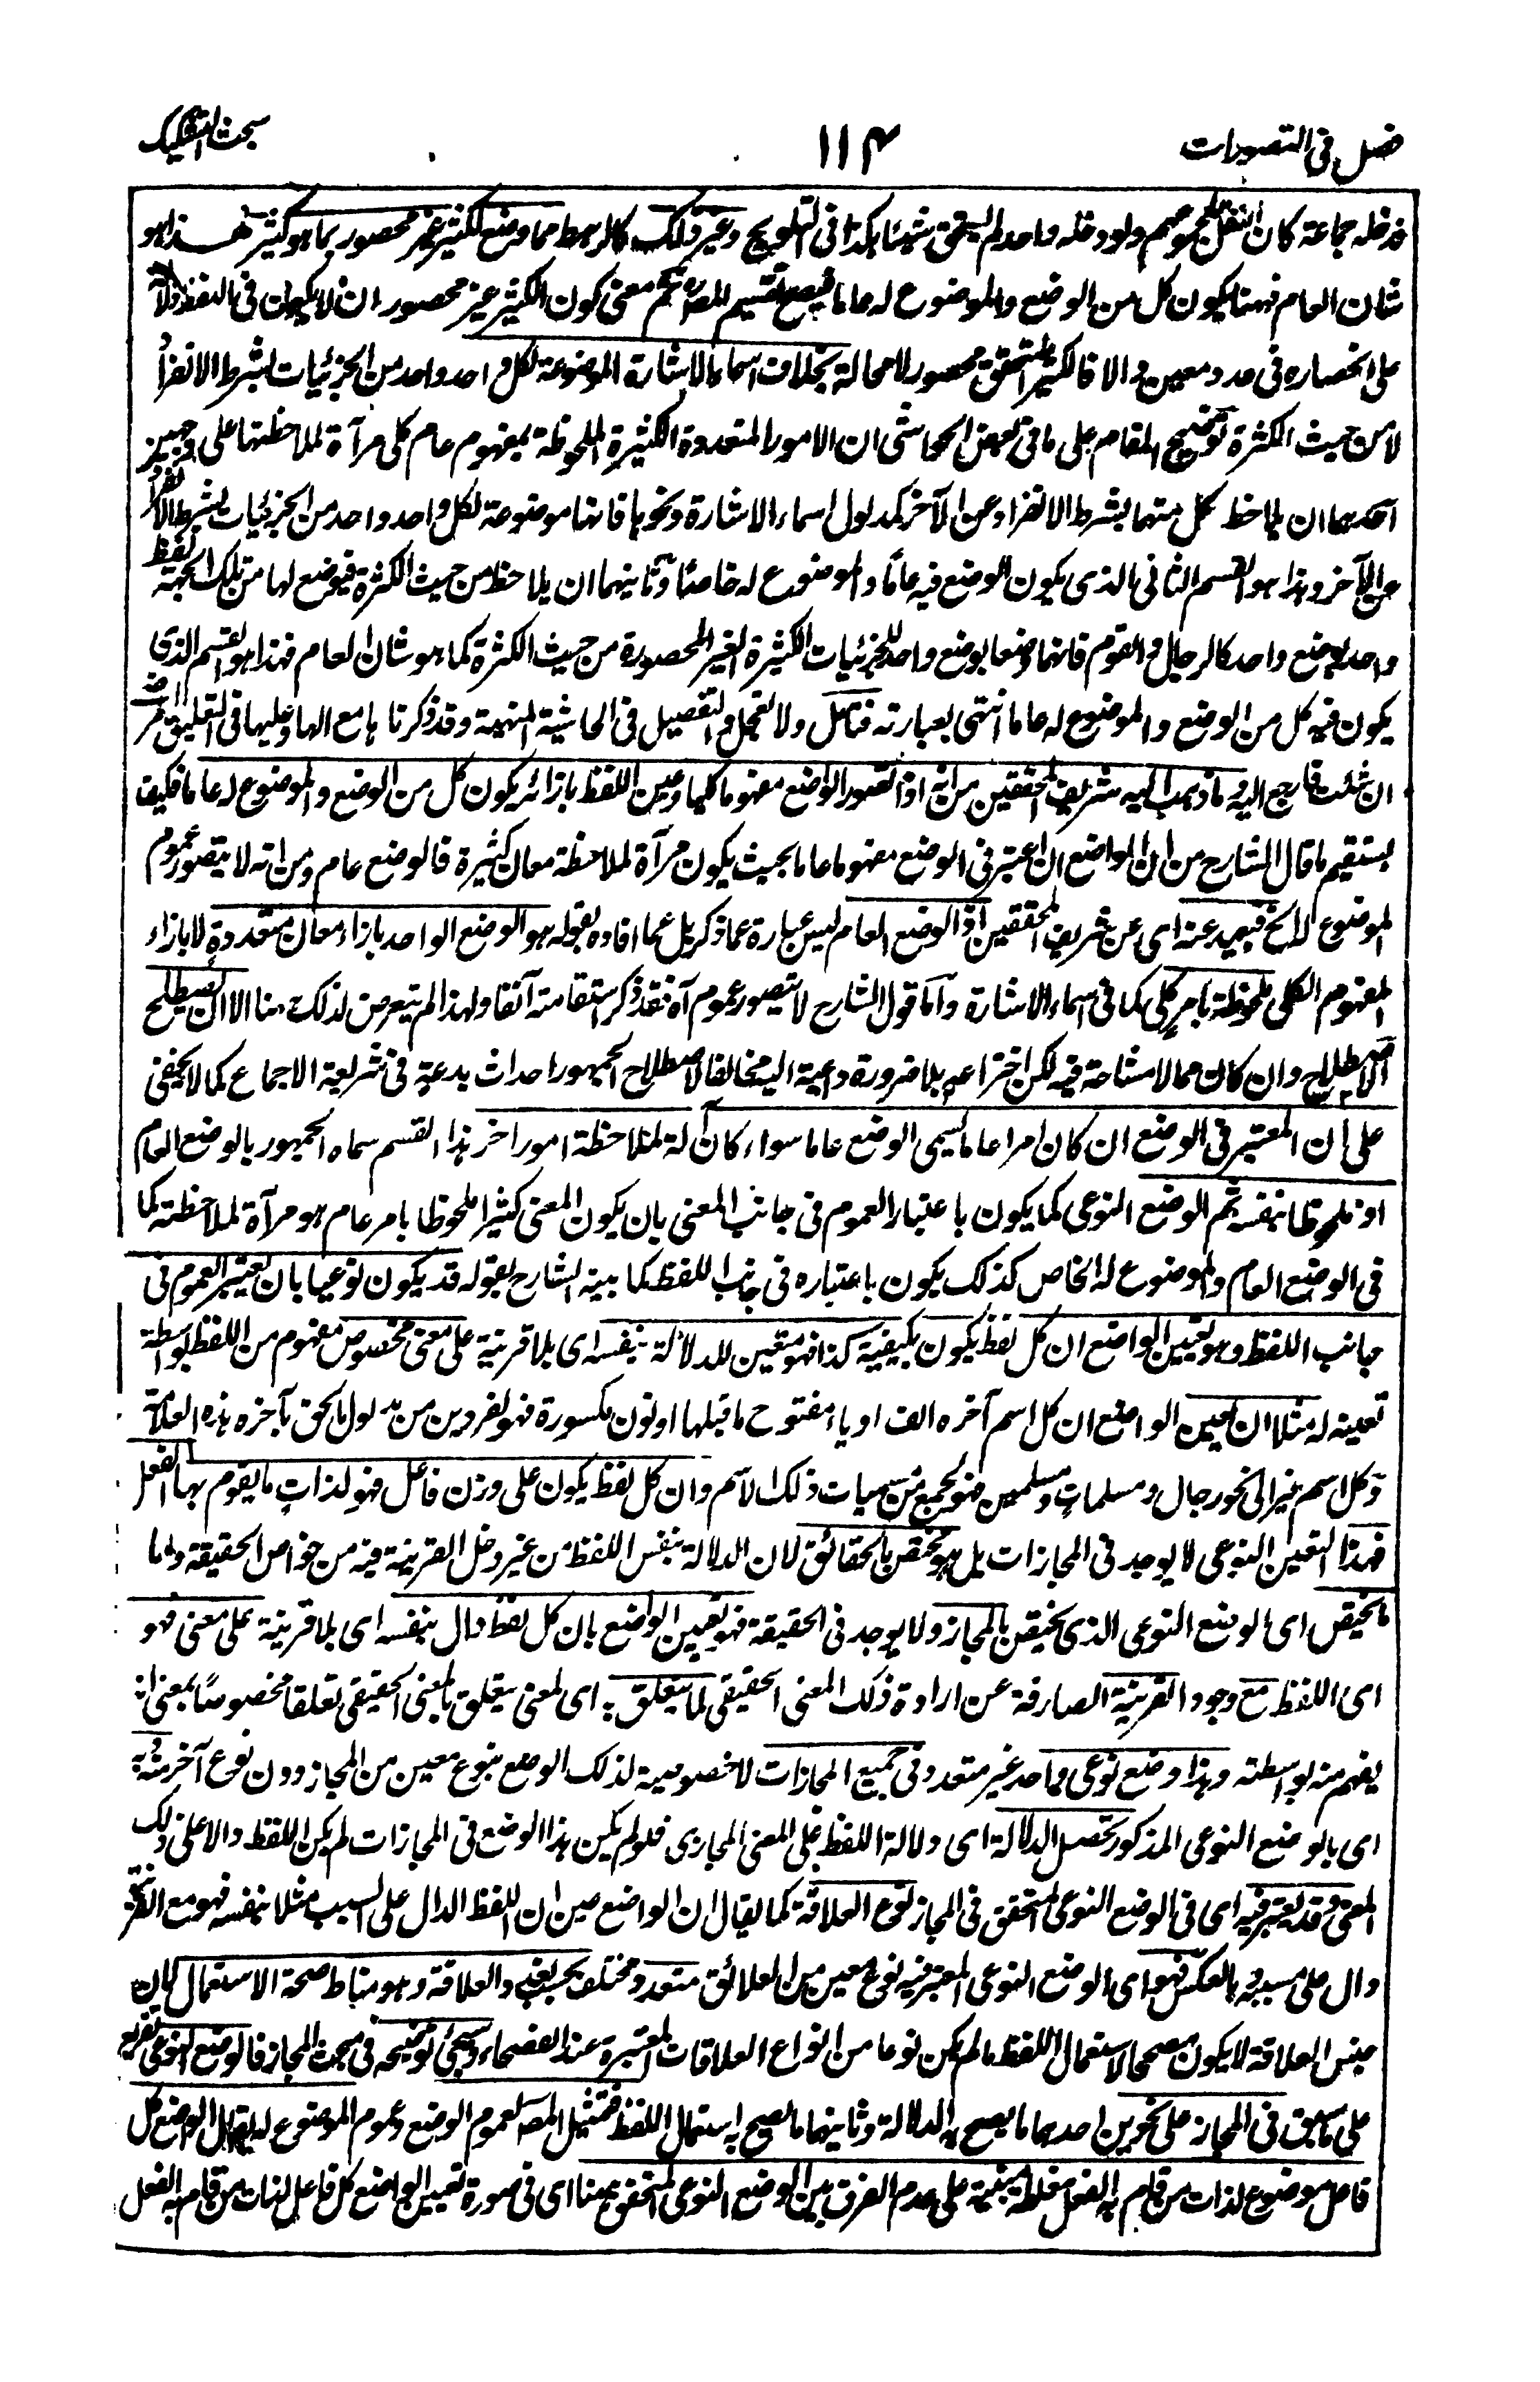 فصل فی التصورات
۱۱۴
مبحث التشکیک
فدخله جماعة کان النفل لمجموعهم ولو دخله واحد لم یستحق شیئا هکذا فی التلویح وغیر ذلک کالرهط مما وضع لکثیر غیر محصور بما هو کثیر هذا هو
شان العام فههنا یکون کل من الوضع والموضوع له عاما فیصح تقسیم المصر ثم معنی کون الکثیر غیر محصور ان لا یکون فی اللفظ دلالة
علی انحصاره فی عدد معین والا فالکثیر المتحقق محصور لا محالة بخلاف اسماء الاشارة الموضوعة لکل واحد واحد من الجزئیات بشرط الانفراد
لا من حیث الکثرة توضیح المقام علی ما فی بعض الحواشی ان الامور المتعددة الکثیرة الملحوظة بمفهوم عام کلی مرآة لملاحظتها علی وجهین
احدهما ان یلاحظ کل منهما بشرط الانفراد عن الآخر کمدلول اسماء الاشارة ونحوها فانها موضوعة لکل واحد واحد من الجزئیات بشرط الانفراد
عن الآخر وهذا هو القسم الثانی الذی یکون الوضع فیه عاما والموضوع له خاصا وثانیهما ان یلاحظ من حیث الکثرة فیوضع لها من تلک الجهة لفظ
واحد بوضع واحد کالرجال والقوم فانهما وضعا بوضع واحد للجزئیات الکثیرة الغیر المحصورة من حیث الکثرة کما هو شان العام فهذا هو القسم الذی
یکون فیه کل من الوضع والموضوع له عاما انتهی بعبارته فتامل ولا تعجل والتفصیل فی الحاشیة المنهیة وقد ذکرنا ها مع مالها وعلیها فی التعلیق
ان شئت فارجع الیه وما ذهب الیه شریف المحققین من انه اذا تصور الواضع مفهوما کلیا وعین اللفظ بازائه یکون کل من الوضع والموضوع له عاما فکیف
یستقیم ما قال الشارح من ان الواضع ان اعتبر فی الوضع مفهوما عاما بحیث یکون مرآة لملاحظة معان کثیرة فالوضع عام ومن انه لا یتصور عموم
الموضوع له الخ فبعید عنه ای عن شریف المحققین اذ الوضع العام لیس عبارة عما ذکر بل عما افاده بقوله هو الوضع الواحد بازاء معان متعددة لا بازاء
المفهوم الکلی ملحوظة بامر کلی کما فی اسماء الاشارة واما قول الشارح لا یتصور عموم آه فقد ذکر استقامته آنفا ولهذا لم یتعرض لذلک هنا الا ان یصطلح
الاصطلاح وان کان مما لا مشاحة فیه لکن اختراعه بلا ضرورة داعیة الیه مخالفا لاصطلاح الجمهور احداث بدعة فی شریعة الاجماع کما لا یخفی
علی ان المعتبر فی الوضع ان کان امرا عاما یسمی الوضع عاما سواء کان آلة لملاحظة امور اخر هذا القسم سماه الجمهور بالوضع العام
او ملحوظا بنفسه ثم الوضع النوعی کما یکون باعتبار العموم فی جانب المعنی بان یکون المعنی کثیرا ملحوظا بامر عام هو مرآة لملاحظته کما
فی الوضع العام والموضوع له الخاص کذلک یکون باعتباره فی جانب اللفظ کما بینه الشارح بقوله قد یکون نوعیا بان یعتبر العموم فی
جانب اللفظ وهو تعیین الواضع ان کل لفظ یکون بکیفیة کذا فهو متعین للدلالة بنفسه ای بلا قرینة علی معنی مخصوص مفهوم من اللفظ بواسطة
تعینه له مثلا ان یعین الواضع ان کل اسم آخره الف او یاء مفتوح ما قبلها او نون مکسورة فهو لفردین من مدلول ما لحق بآخره هذه العلامة
وکل اسم غیر الی نحو رجال ومسلمات ومسلمین فهو لجمع من مسمیات ذلک الاسم وان کل لفظ یکون علی وزن فاعل فهو لذات ما یقوم بها الفعل
فهذا التعین النوعی لا یوجد فی المجازات بل هو مختص بالحقائق لان الدلالة بنفس اللفظ من غیر دخل القرینة فیه من خواص الحقیقة واما
ما یختص ای الوضع النوعی الذی یختص بالمجاز ولا یوجد فی الحقیقة فهو تعیین الواضع بان کل لفظ دال بنفسه ای بلا قرینة علی معنی فهو
ای اللفظ مع وجود القرینة الصارفة عن ارادة ذلک المعنی الحقیقی لما یتعلق به ای لمعنی یتعلق بالمعنی الحقیقی تعلقا مخصوصا بمعنی انه
یفهم منه بواسطته وهذا وضع نوعی واحد غیر متعدد فی جمیع المجازات لا خصوصیة لذلک الوضع بنوع معین من المجاز دون نوع آخر منه وبه
ای بالوضع النوعی المذکور تحصل الدلالة ای دلالة اللفظ علی المعنی المجازی فلو لم یکن هذا الوضع فی المجازات لم یکن اللفظ دالا علی ذلک
المعنی وقد یعتبر فیه ای فی الوضع النوعی المتحقق فی المجاز نوع العلاقة کما یقال ان الواضع عین ان اللفظ الدال علی السبب مثلا بنفسه فهو مع القرینة
دال علی مسببه وبالعکس فهو ای الوضع النوعی المعتبر فیه نوع معین من العلائق متعدد ومختلف بحسب تعدد العلاقة وهو مناط صحة الاستعمال فان
جنس العلاقة لا یکون مصححا لاستعمال اللفظ ما لم یکن نوعا من انواع العلاقات المعتبرة عند الفصحاء وسیجئ توضیحه فی مبحث المجاز فالوضع النوعی تفریع
علی ما سبق فی المجاز علی نحوین احدهما ما یصح به الدلالة وثانیهما ما یصح به استعمال اللفظ فتمثیل المصر لعموم الوضع وعموم الموضوع له بقول الواضع کل
فاعل موضوع لذات من قام به الفعل مغلطة مبنیة علی عدم الفرق بین الوضع النوعی المتحقق ههنا ای فی صورة تعیین الواضع کل فاعل لذات من قام به الفعل